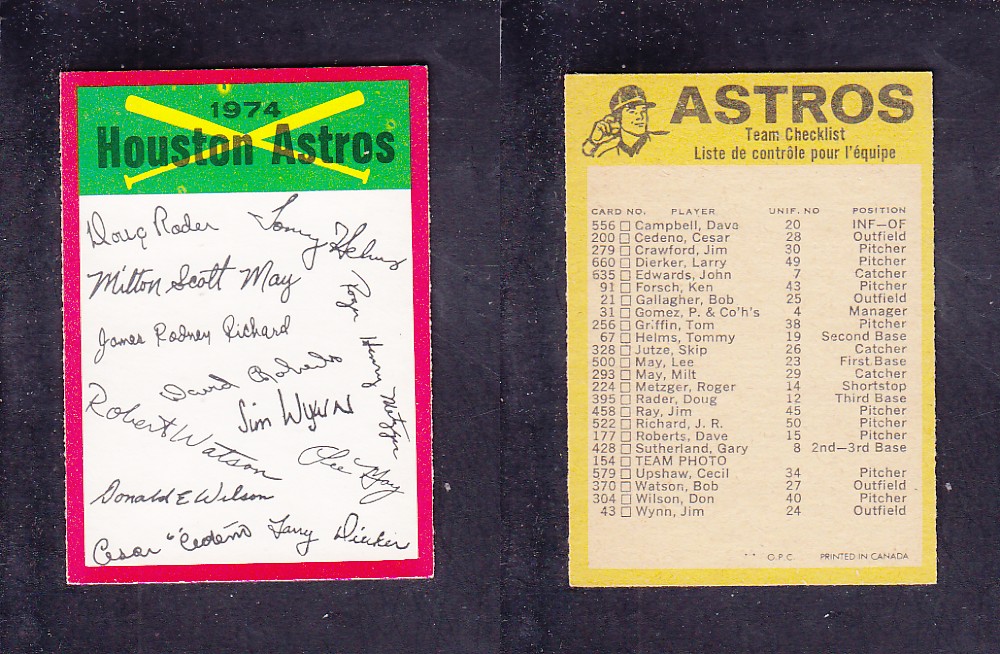 1974
Houston Astros
Doug Rader
Tommy Helms
Milton Scott May
Roger Henry Metzger
James Rodney Richard
David Roberts
Jim Wynn
Robert Watson
Lee May
Donald E Wilson
Cesar "Cedeño
Larry Dierker
ASTROS
Team Checklist
Liste de contrôle pour l'équipe
CARD NO. PLAYER UNIF. NO POSITION
556 □ Campbell, Dave 20 INF-OF
200 □ Cedeno, Cesar 28 Outfield
279 □ Crawford, Jim 30 Pitcher
660 □ Dierker, Larry 49 Pitcher
635 □ Edwards, John 7 Catcher
91 □ Forsch, Ken 43 Pitcher
21 □ Gallagher, Bob 25 Outfield
31 □ Gomez, P. & Co'h's 4 Manager
256 □ Griffin, Tom 38 Pitcher
67 □ Helms, Tommy 19 Second Base
328 □ Jutze, Skip 26 Catcher
500 □ May, Lee 23 First Base
293 □ May, Milt 29 Catcher
224 □ Metzger, Roger 14 Shortstop
395 □ Rader, Doug 12 Third Base
458 □ Ray, Jim 45 Pitcher
522 □ Richard, J. R. 50 Pitcher
177 □ Roberts, Dave 15 Pitcher
428 □ Sutherland, Gary 8 2nd-3rd Base
154 □ TEAM PHOTO
579 □ Upshaw, Cecil 34 Pitcher
370 □ Watson, Bob 27 Outfield
304 □ Wilson, Don 40 Pitcher
43 □ Wynn, Jim 24 Outfield
** O.P.C. PRINTED IN CANADA